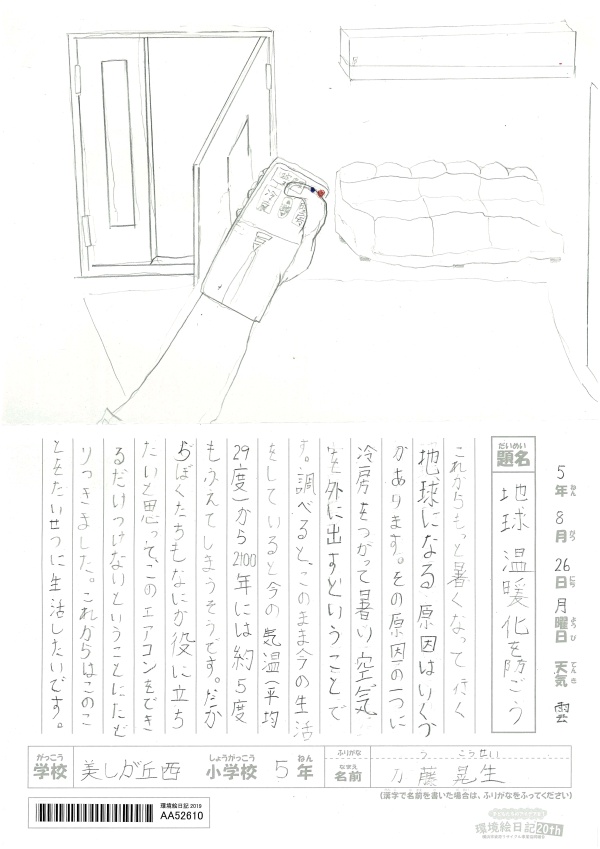 5年 8月 26日 月曜日 天気 雲
ねん がつ にち ようび てんき
だいめい
題名 地球温暖化を防ごう
これからもっと暑くなって行く
地球になる原因はいくつ
かあります。その原因の一つに
冷房をつかって暑い空気
を外に出すということで
す。調べると、このまま今の生活
をしていると今の気温(平均
29度)から2100年には約5度
もふえてしまうそうです。だか
らぼくたちもなにか役に立ち
たいと思って、このエアコンをでき
るだけつけないということにたど
りつきました。これからはこのこ
とをたいせつに生活したいです。
がっこう しょうがっこう ねん
学校 美しが丘西 小学校 5年
ふりがな う こうせい
なまえ
名前 藤晃生
(漢字で名前を書いた場合は、ふりがなをふってください)
環境絵日記 2019
AA52610
環境絵日記20th
冷房